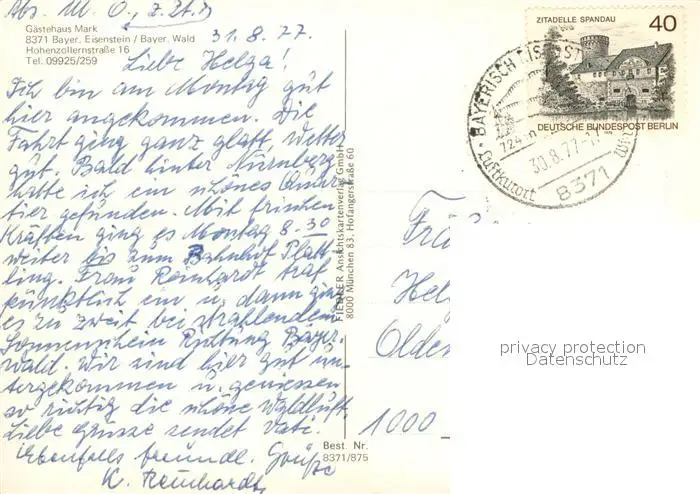 Abs. M. O., z. Zt.
Gästehaus Mark
8371 Bayer. Eisenstein / Bayer. Wald
Hohenzollernstraße 16
Tel. 09925/259
31.8.77
Liebe Helga!
Ich bin am Montag gut
hier angekommen. Die
Fahrt ging ganz glatt, Wetter
gut. Bald hinter Nürnberg
hatte ich ein schönes Quar-
tier gefunden. Mit frischen
Kräften ging es Montag 8.30
weiter bis zum Bahnhof Platt-
ling. Frau Reinhardt traf
pünktlich ein u. dann ging
es zu zweit bei strahlendem
Sonnenschein Richtung Bayer.
wald. Wir sind hier gut un-
tergekommen u. geniessen
so richtig die schöne Waldluft.
Liebe Grüsse sendet Vati.
Ebenfalls freundl. Grüße
K. Reinhardt
FIEDLER Ansichtskartenverlag GmbH
8000 München 83. Hofangerstraße 60
Best. Nr.
8371/875
ZITADELLE SPANDAU
40
DEUTSCHE BUNDESPOST BERLIN
BAYERISCH EISENST
30.8.77
Luftkurort
8371
Frä
Hel
Olde
1000
privacy protection
Datenschutz